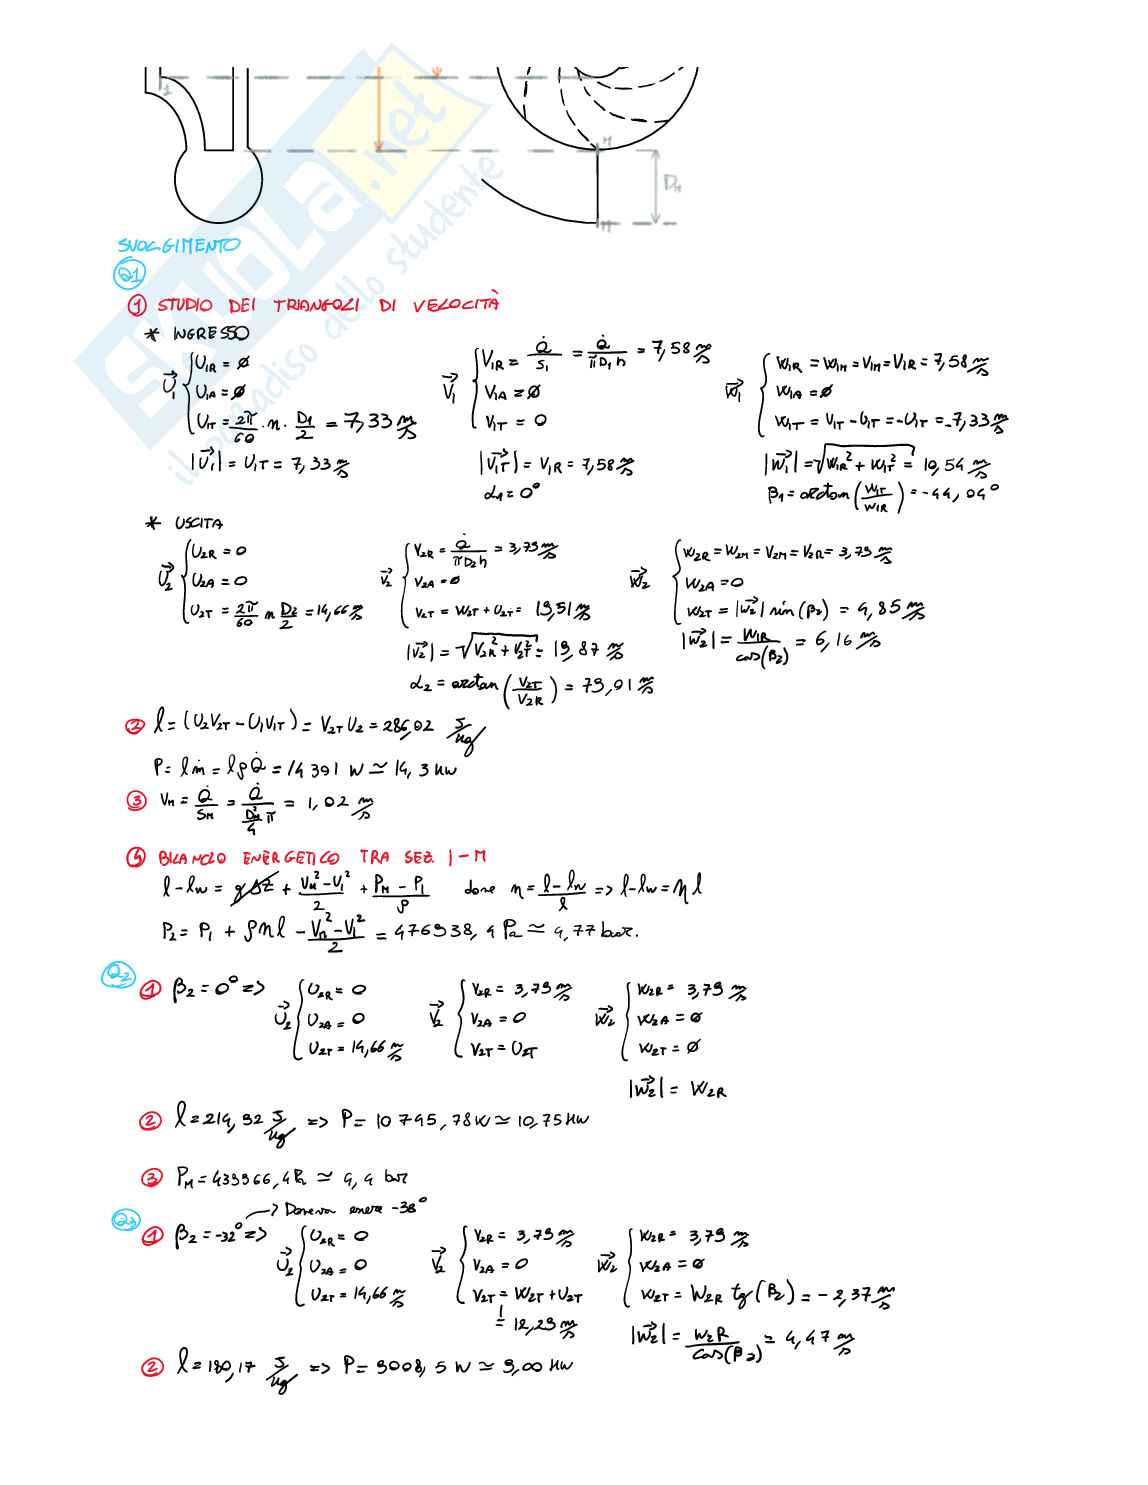 1
M
D_M
M
SVOLGIMENTO
Q1
① STUDIO DEI TRIANGOLI DI VELOCITÀ
* INGRESSO
U⃗₁ { U1R = ∅
U1A = ∅
U1T = 2π/60 · n · D1/2 = 7,33 m/s
|U⃗₁| = U1T = 7,33 m/s
V⃗₁ { V1R = Q̇/S1 = Q̇/(π D1 h) = 7,58 m/s
V1A = ∅
V1T = 0
|V⃗1T| = V1R = 7,58 m/s
α1 = 0°
W⃗₁ { W1R = W1M = V1M = V1R = 7,58 m/s
W1A = ∅
W1T = V1T - U1T = -U1T = -7,33 m/s
|W⃗₁| = √(W1R² + W1T²) = 10,54 m/s
β1 = arctan (W1T/W1R) = -44,04°
* USCITA
U⃗₂ { U2R = 0
U2A = 0
U2T = 2π/60 n D2/2 = 14,66 m/s
V⃗₂ { V2R = Q̇/(π D2 h) = 3,79 m/s
V2A = ∅
V2T = W2T + U2T = 19,51 m/s
|V⃗₂| = √(V2R² + V2T²) = 19,87 m/s
α2 = arctan (V2T/V2R) = 79,01 m/s
W⃗₂ { W2R = W2M = V2M = V2R = 3,79 m/s
W2A = 0
W2T = |W⃗₂| sin(β2) = 4,85 m/s
|W⃗₂| = W1R/cos(β2) = 6,16 m/s
② l = (U2V2T - U1V1T) = V2T U2 = 286,02 J/kg
P = l ṁ = l ρ Q̇ = 14391 W ≃ 14,3 kW
③ VM = Q̇/SM = Q̇/(DM²/4 π) = 1,02 m/s
④ BILANCIO ENERGETICO TRA SEZ. 1-M
l - lw = gΔz + (VM² - V1²)/2 + (PM - P1)/ρ dove η = (l - lw)/l => l - lw = η l
P2 = P1 + ρ η l - (VM² - V1²)/2 = 476938,4 Pa ≃ 4,77 bar.
Q2
① β2 = 0° => U⃗₂ { U2R = 0
U2A = 0
U2T = 14,66 m/s
V⃗₂ { V2R = 3,79 m/s
V2A = 0
V2T = U2T
W⃗₂ { W2R = 3,79 m/s
W2A = ∅
W2T = ∅
|W⃗₂| = W2R
② l = 214,92 J/kg => P = 10745,78 W ≃ 10,75 kW
③ PM = 439966,4 Pa ≃ 4,4 bar
Q3
→ Doveva essere -38°
① β2 = -32° => U⃗₂ { U2R = 0
U2A = 0
U2T = 14,66 m/s
V⃗₂ { V2R = 3,79 m/s
V2A = 0
V2T = W2T + U2T
= 12,29 m/s
W⃗₂ { W2R = 3,79 m/s
W2A = ∅
W2T = W2R tg(β2) = -2,37 m/s
|W⃗₂| = W2R/cos(β2) = 4,47 m/s
② l = 180,17 J/kg => P = 9008,5 W ≃ 9,00 kW
SKUOLA.net
il paradiso dello studente